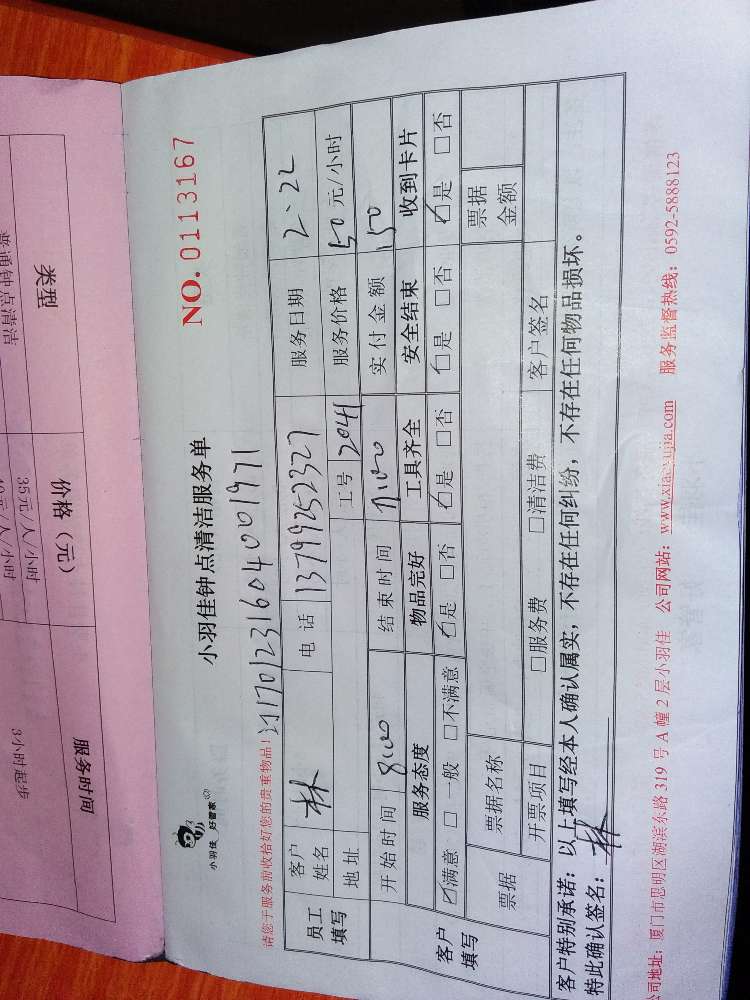 类型 价格（元） 服务时间
普通钟点清洁 35元/人/小时 3小时起步
40元/人/小时
小羽佳 好管家
小羽佳钟点清洁服务单
NO.0113167
请您于服务前收拾好您的贵重物品！
员工填写 客户姓名 林 电话 13799252327 服务日期 2、22
地址 工号 2041 服务价格 50元/小时
开始时间 8:00 结束时间 11:00 实付金额 150
客户填写 服务态度 物品完好 工具齐全 安全结束 收到卡片
☑满意 □一般 □不满意 ☑是 □否 ☑是 □否 ☑是 □否 ☑是 □否
票据 票据名称 票据金额
开票项目 □服务费 □清洁费 客户签名
客户特别承诺：以上填写经本人确认属实，不存在任何纠纷，不存在任何物品损坏。
特此确认签名： 林
司地址：厦门市思明区湖滨东路319号A幢2层小羽佳 公司网站：www.xiaoyujia.com 服务监督热线：0592-5888123